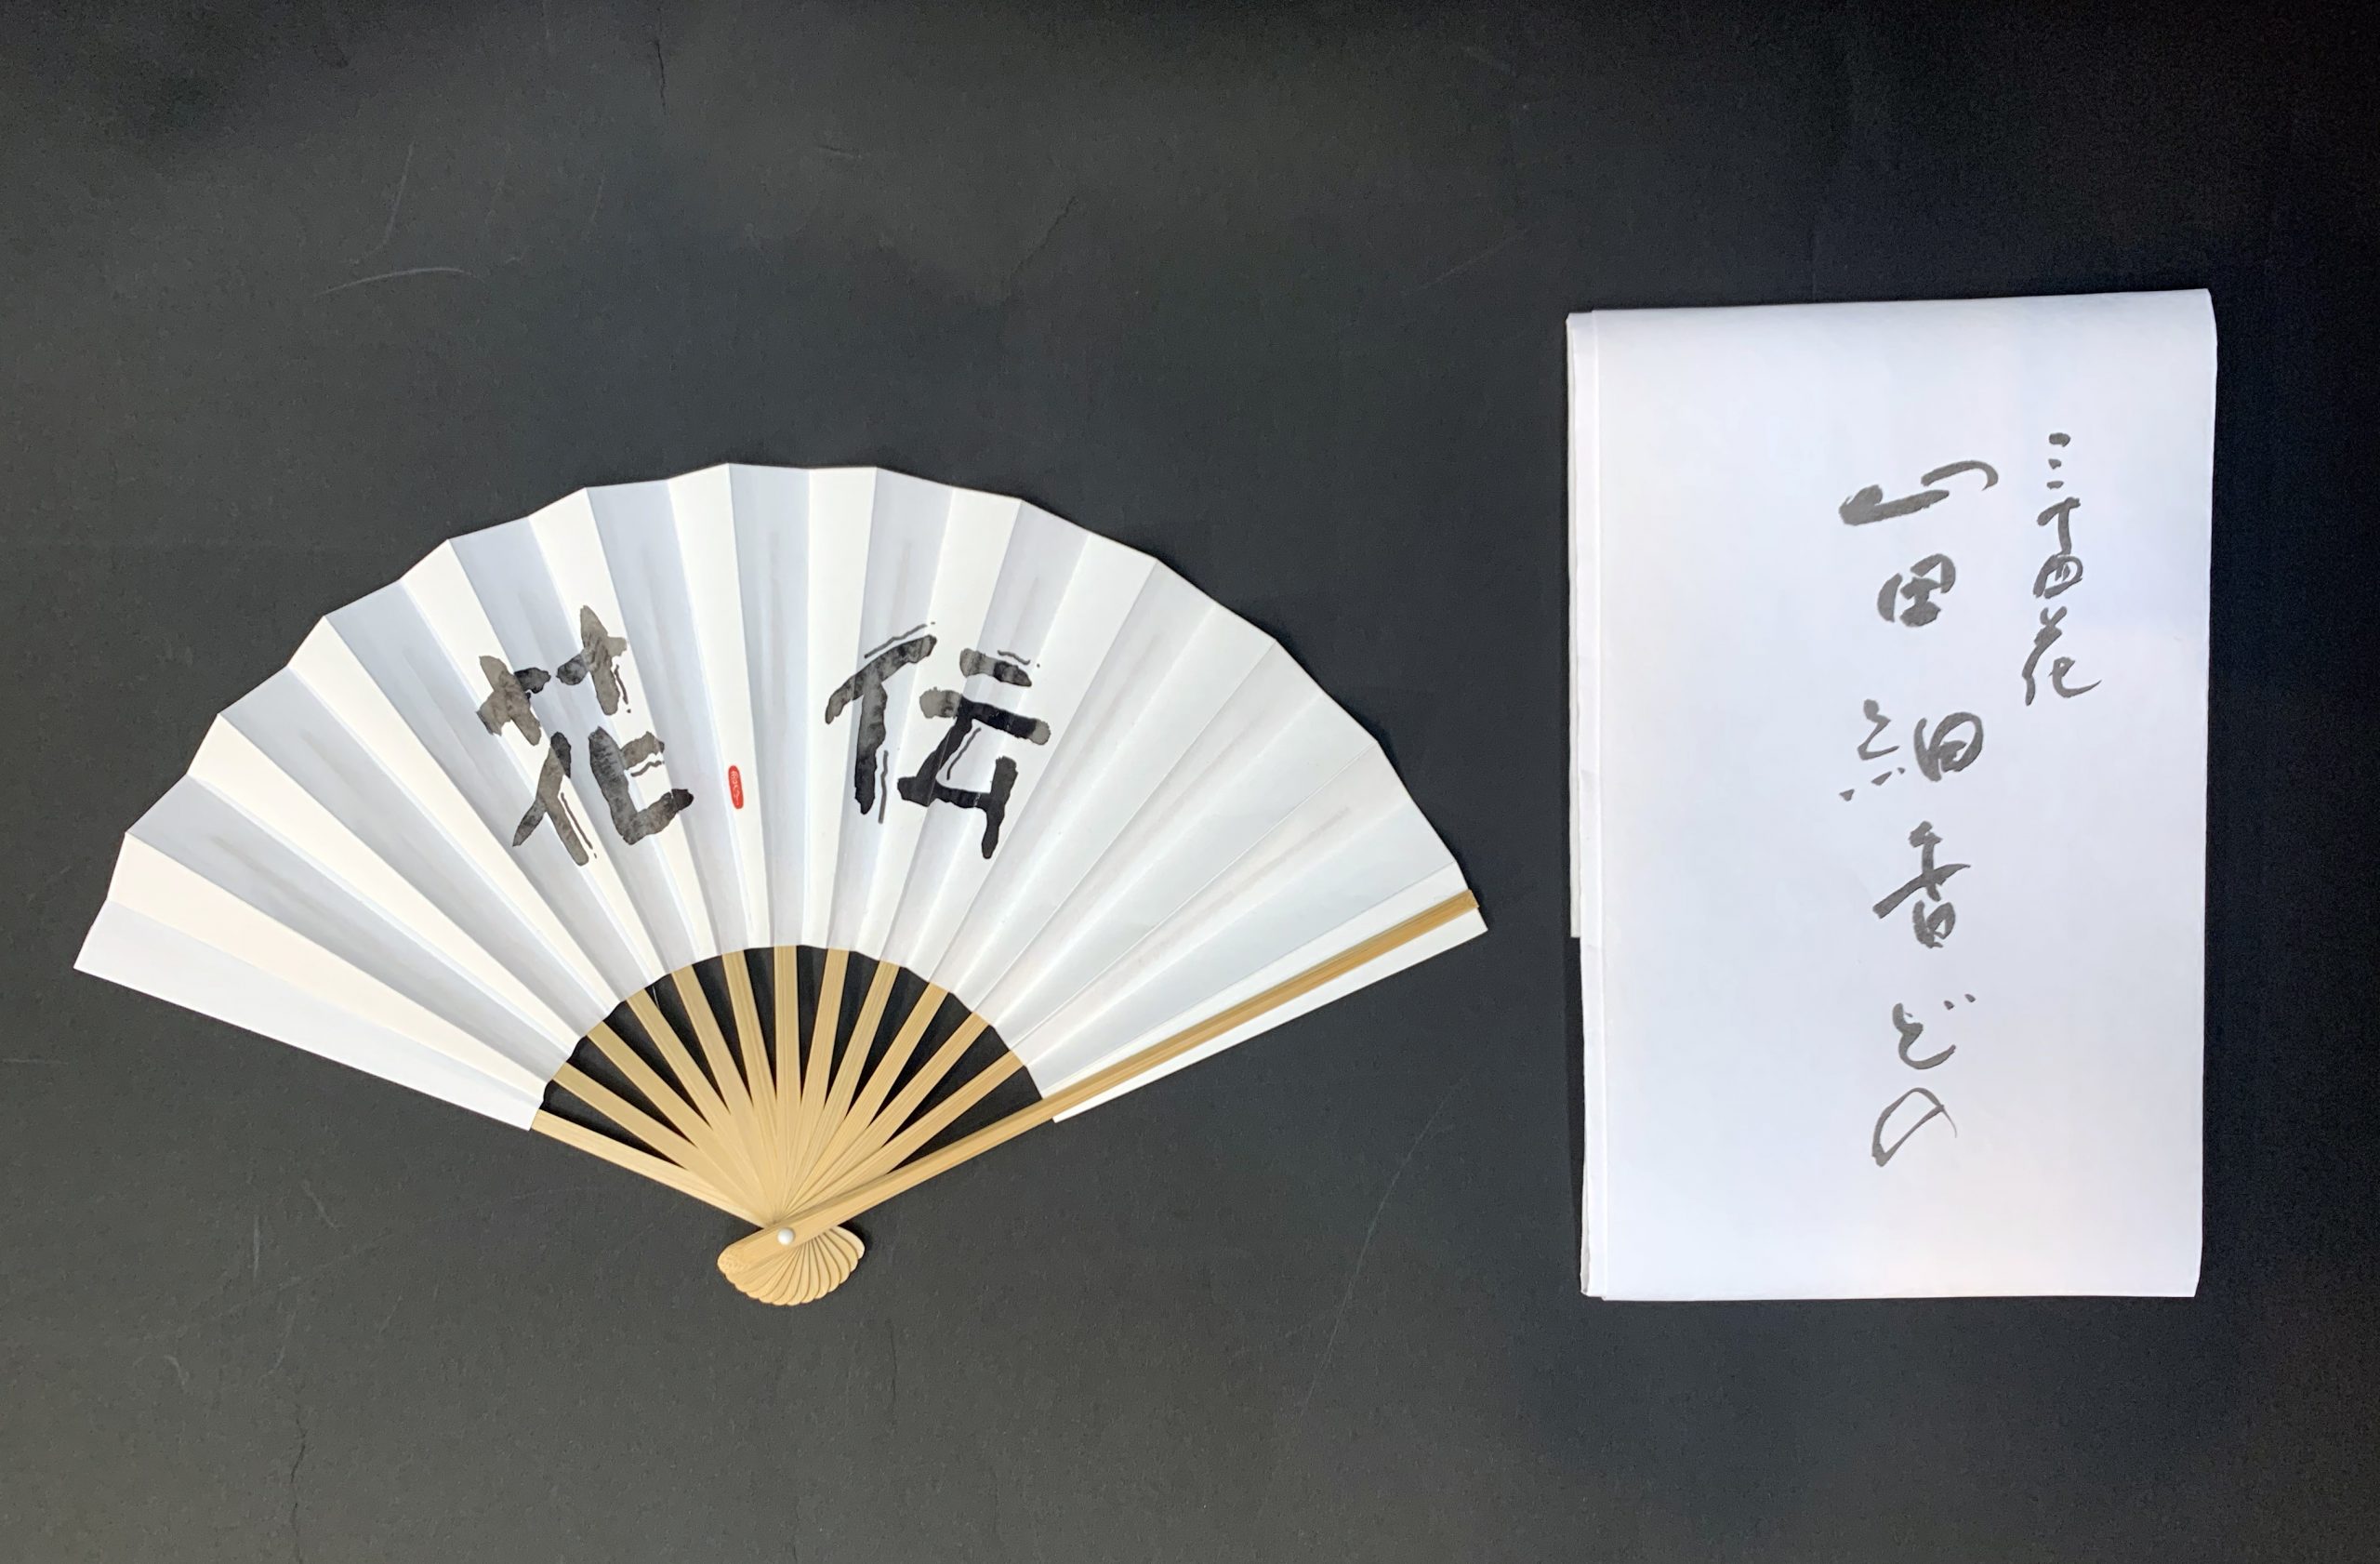 花伝
三十四花
田細香どの